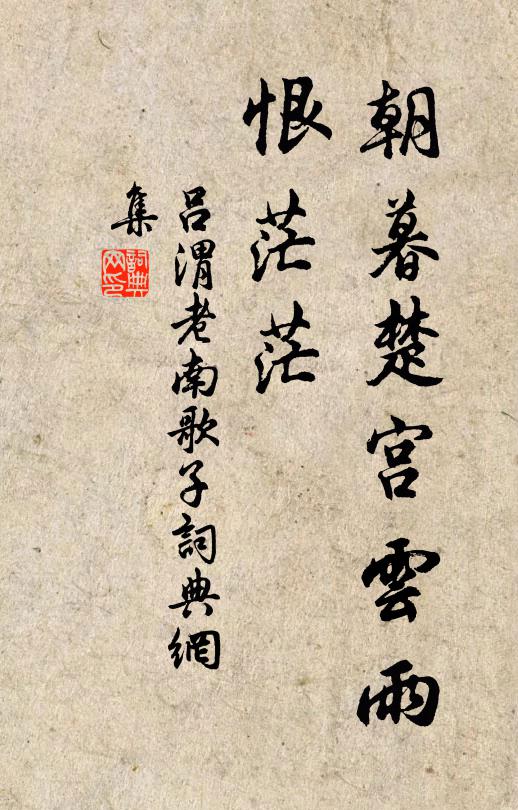 朝暮楚宮雲雨
恨茫茫
呂渭老南歌子詞典網
集
詞典
网印